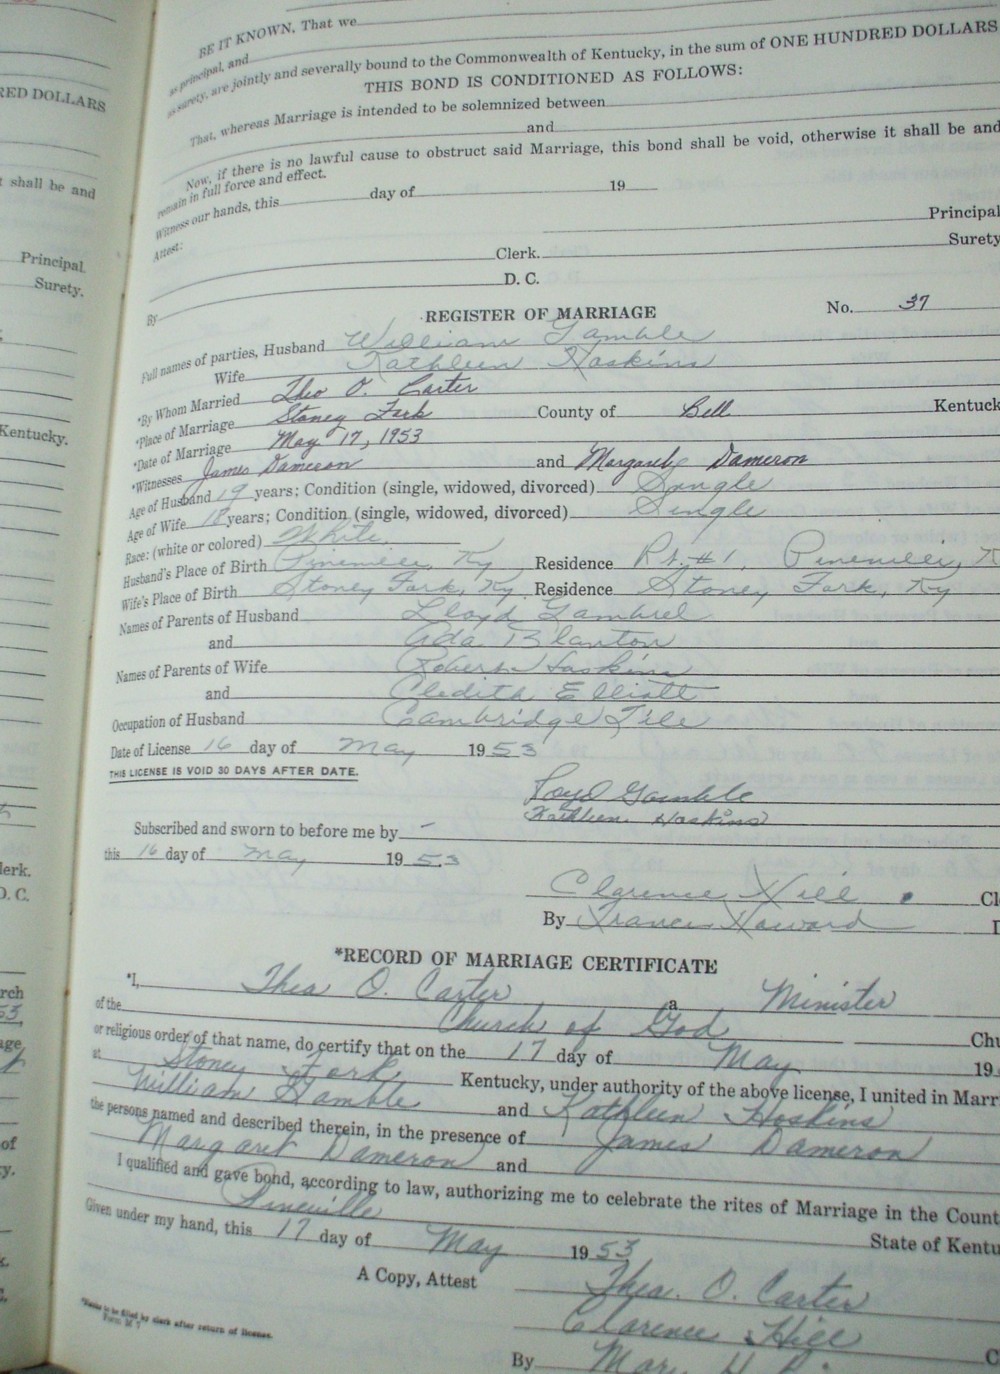 BE IT KNOWN, That we
as principal, and
as surety, are jointly and severally bound to the Commonwealth of Kentucky, in the sum of ONE HUNDRED DOLLARS
THIS BOND IS CONDITIONED AS FOLLOWS:
That, whereas Marriage is intended to be solemnized between
and
Now, if there is no lawful cause to obstruct said Marriage, this bond shall be void, otherwise it shall be and
remain in full force and effect.
Witness our hands, this day of 19
Attest: Principal
Surety
Clerk.
By D. C.
REGISTER OF MARRIAGE No. 37
Full names of parties, Husband William Gamble
Wife Kathleen Hoskins
*By Whom Married Theo O. Carter
*Place of Marriage Stoney Fork County of Bell Kentuck
*Date of Marriage May 17, 1953
*Witnesses James Dameron and Margaret Dameron
Age of Husband 19 years; Condition (single, widowed, divorced) Single
Age of Wife 18 years; Condition (single, widowed, divorced) Single
Race: (white or colored) White
Husband's Place of Birth Pineville, Ky Residence Rt. #1, Pineville, K
Wife's Place of Birth Stoney Fork, Ky. Residence Stoney Fork, Ky
Names of Parents of Husband Lloyd Gambrel
and Ada Blanton
Names of Parents of Wife Robert Hoskins
and Cledith Elliott
Occupation of Husband Cambridge Tile
Date of License 16 day of May 1953
THIS LICENSE IS VOID 30 DAYS AFTER DATE.
Loyd Gamble
Kathleen Hoskins
Subscribed and sworn to before me by
this 16 day of May 1953
Clarence Hill Cl
By Frances Howard D
*RECORD OF MARRIAGE CERTIFICATE
*I, Thea O. Carter, a Minister
of the Church of God Chu
or religious order of that name, do certify that on the 17 day of May 19
at Stoney Fork Kentucky, under authority of the above license, I united in Marr
William Gamble and Kathleen Hoskins
the persons named and described therein, in the presence of James Dameron
Margaret Dameron and
I qualified and gave bond, according to law, authorizing me to celebrate the rites of Marriage in the Count
Pineville State of Kentu
Given under my hand, this 17 day of May 1953
Thea. O. Carter
A Copy, Attest Clarence Hill C
By
*Blanks to be filled by clerk after return of license.
RED DOLLARS
t shall be and
Principal.
Surety.
Kentucky.
lerk.
D. C.
rch
53
age
of
y.